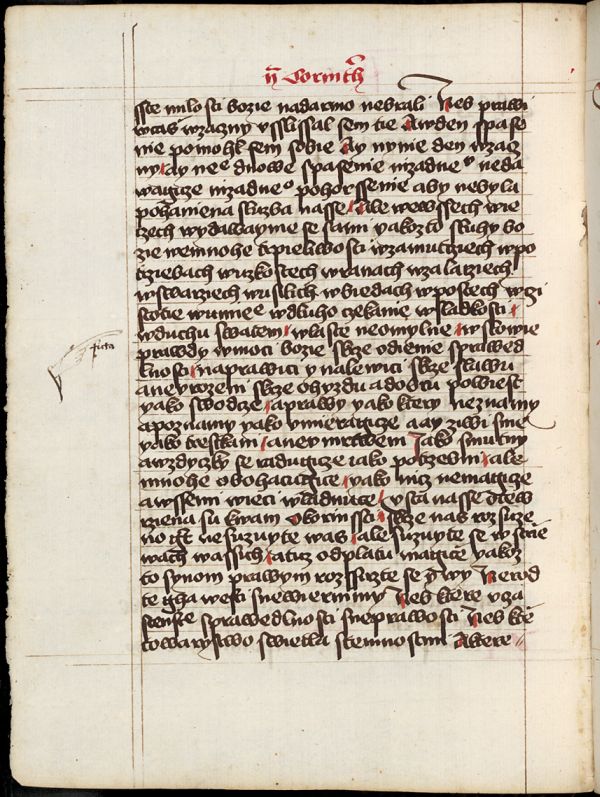 ij Corinth
sste milosti bozie nadarmo nebrali Neb prawi
wczas wzazny vsslissal sem tie Awden spase
nie pomohl sem tobie Ay nynie den wzaz
ny ay nee dnowe spasenie nizadneo neda
wagicze nizadneo pohorssenie aby nebyla
pohaniena sluzba nasse ale wewssech wie
czech wydawayme se sami yakozto sluhy bo
zie wemnohe trpieliwosti wzamutcziech wpo
trziebach wuzkostech wranach wzalarziech
wswarziech wuslich wbiedach wpostech wczi
stotie wumnie wdluho czekanie wsladkosti
wduchu swatem wlaste neomylne wslowie
prawdy wmoci bozie skrze odienie sprawed
lnosti naprawici y nalewici skrze slawu
aneyrozem skrze ohyzdu adobru powiest
yako swodcze aprawy yako ktery neznamy
apoznamy yako vmieragicze aay ziwi sme
yako trestkani aney mrtweni Jako smutny
awzdyczky se radugicze iako potrzebni ale
mnohe obohacugice yako nicz nemagicze
awssemi wieci wladnuce vsta nasse otew
rziena su kwam okorinssci skrze nas rozsuze
no gt nesuzuyte was ale suzuyte se wstrie
wach wassich atuz odplatu magice yakoz
to synom prawym rozssirzte se y wy Nerod
te gha westi snewiernymy Neb ktere vcza
stenstie sprawedlnosti sneprawosti Neb kte
towarystwo swietla stemnostmi Aktere